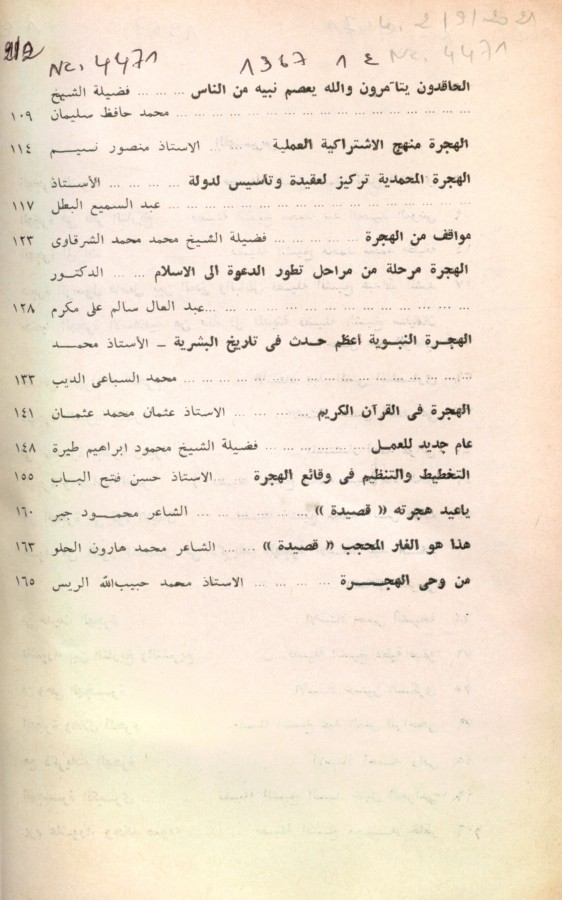 212
No. 4471 1367 14
الحاقدون يتآمرون والله يعصم نبيه من الناس ... ... فضيلة الشيخ
... محمد حافظ سليمان ١٠٩
الهجرة منهج الاشتراكية العملية ... ... الاستاذ منصور نسيـم ١١٤
الهجرة المحمدية تركيز لعقيدة وتأسيس لدولة ... ... ... الأستـاذ
... عبد السميع البطل ١١٧
مواقف من الهجرة ... ... ... فضيلة الشيخ محمد محمد الشرقاوى ١٢٣
الهجرة مرحلة من مراحل تطور الدعوة الى الاسلام ... ... الدكتـور
... عبد العال سالم على مكرم ١٢٨
الهجـرة النبـوية أعظم حـدث فى تاريخ البشرية ــ الأستاذ محمـد
... محمد السباعى الديب ١٣٣
الهجرة فى القرآن الكريم ... ... ... الاستاذ عثمان محمد عثمـان ١٤١
عام جديد للعمـل ... ... ... فضيلة الشيخ محمود ابراهيم طيرة ١٤٨
التخطيط والتنظيم فى وقائع الهجرة ... ... الاستاذ حسن فتح البـاب ١٥٥
ياعيد هجرته « قصيدة » ... ... ... الشاعر محمـود جبر ١٦٠
هذا هو الغار المحجب « قصيدة » ... ... الشاعر محمد هارون الحلو ١٦٣
من وحى الهجـــرة ... ... ... الاستاذ محمد حبيب‌الله الريس ١٦٥